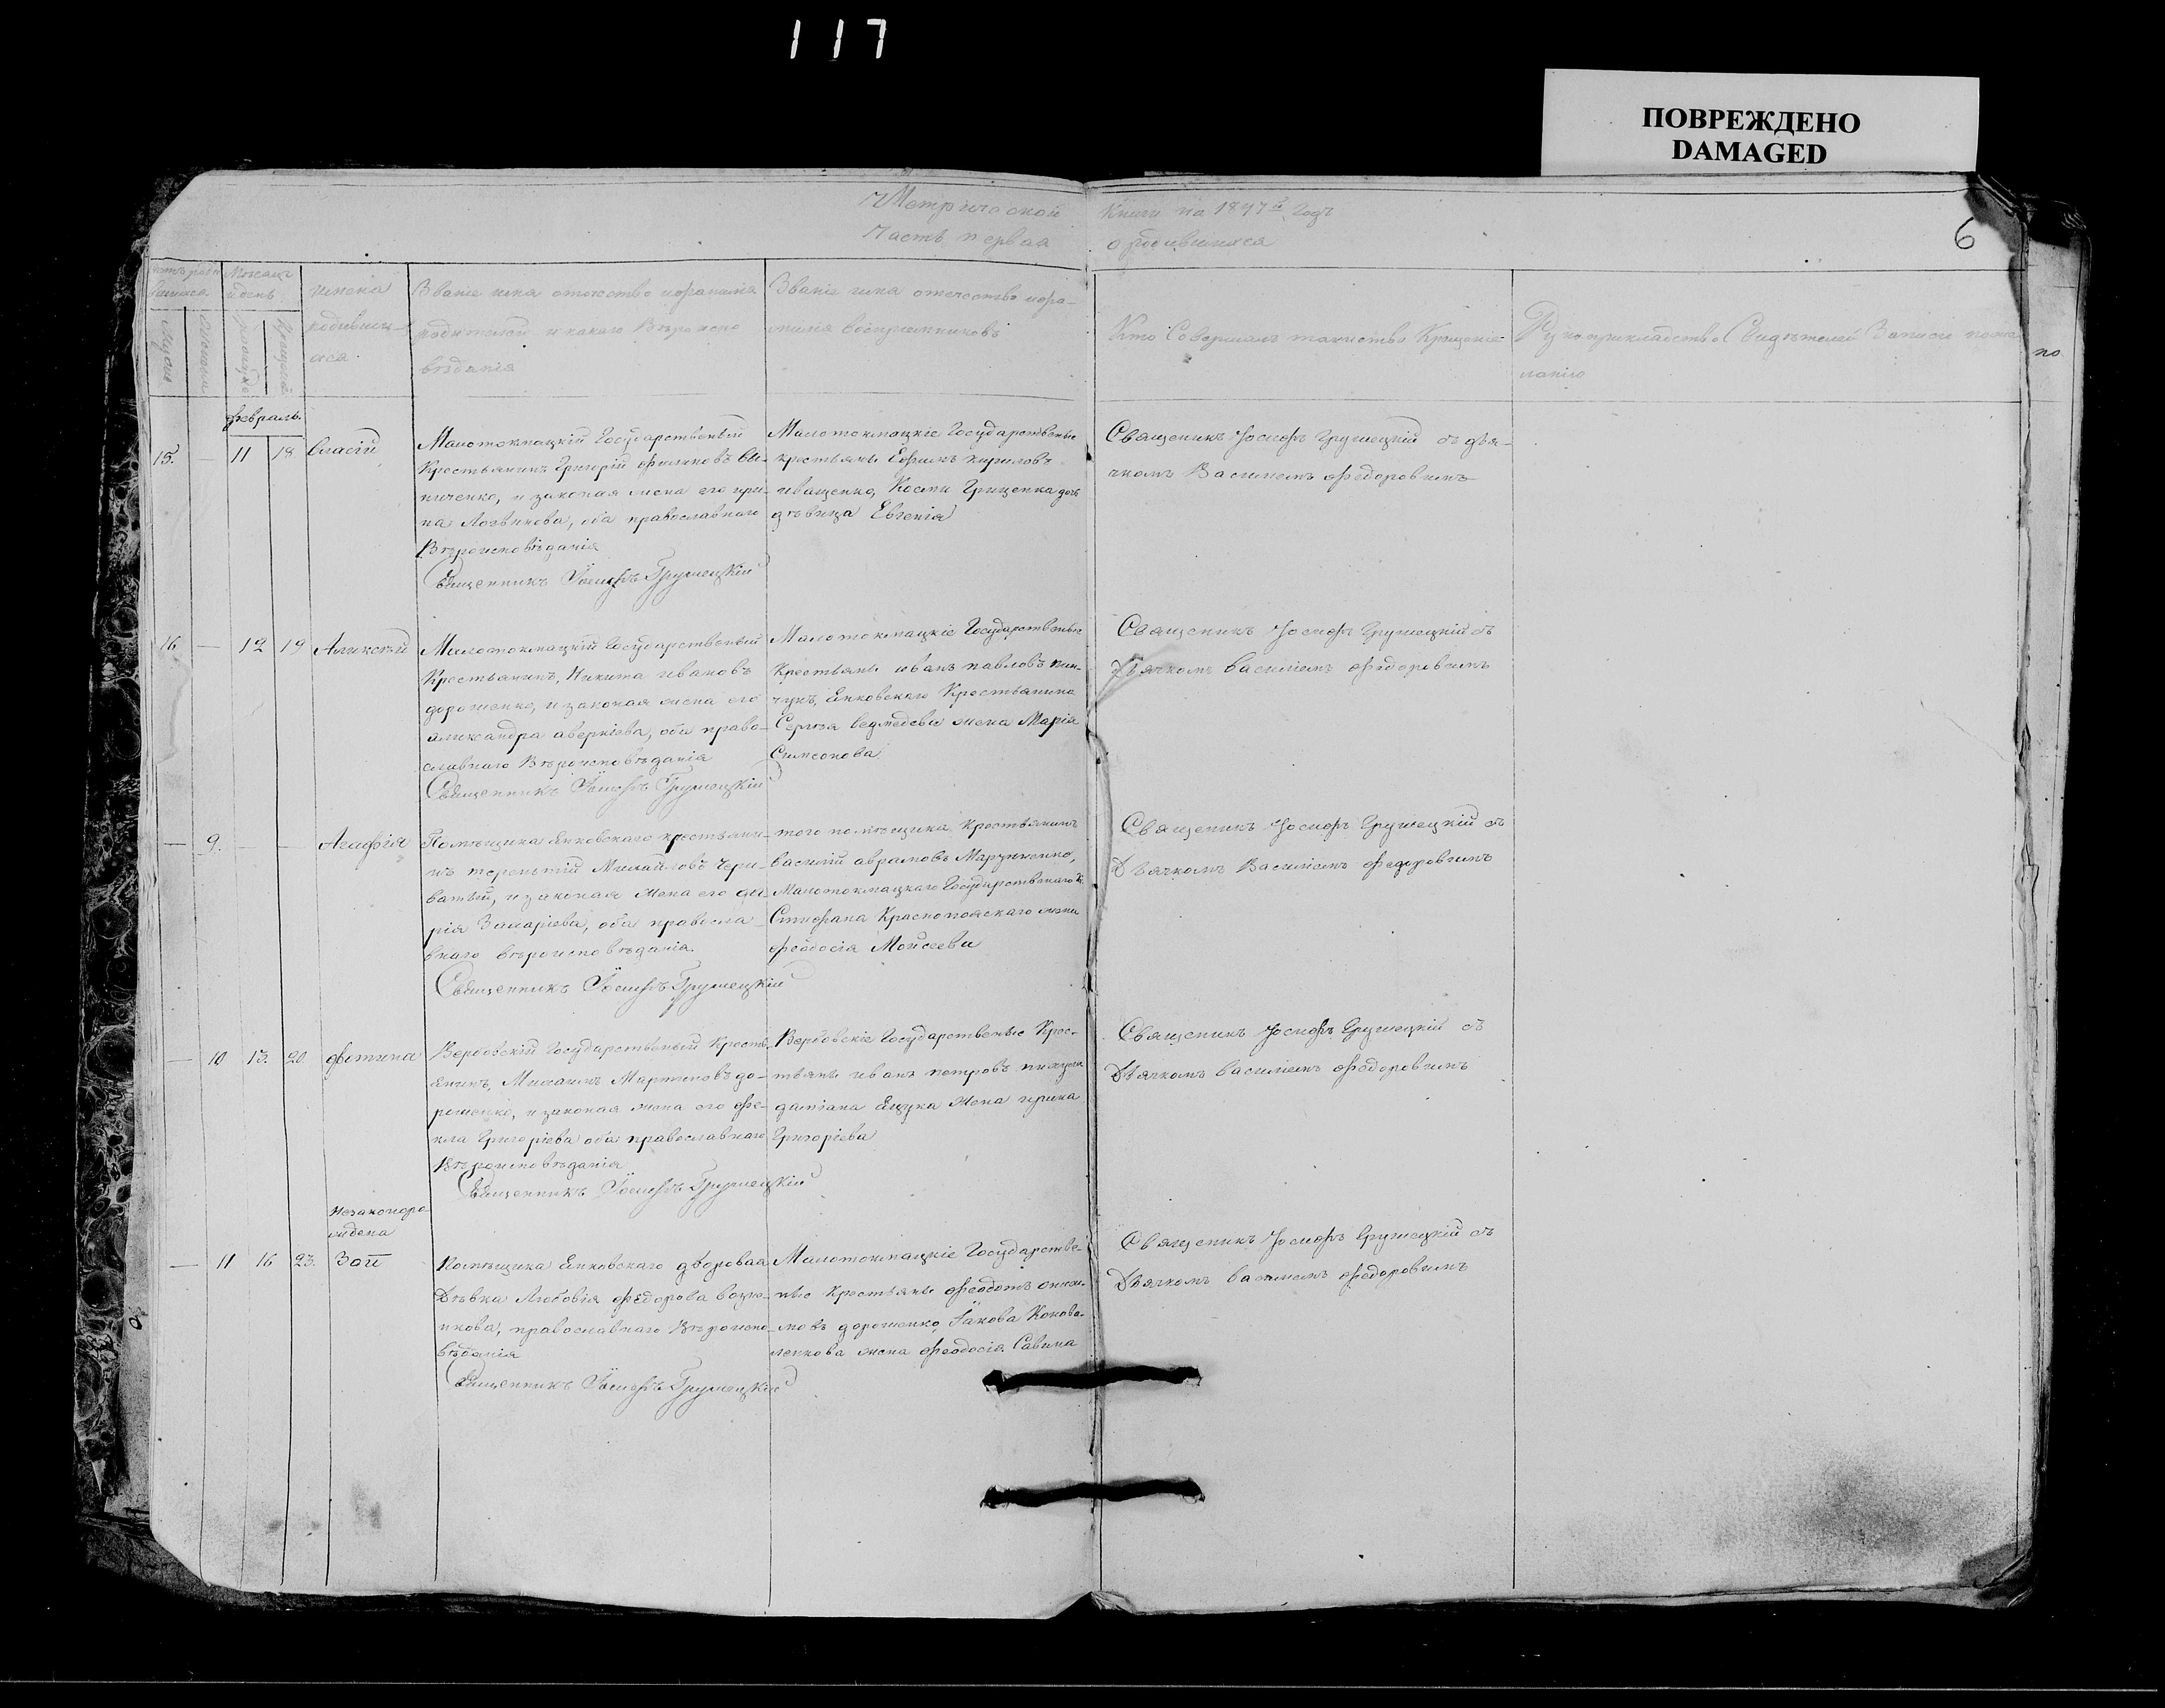 117
ПОВРЕЖДЕНО
DAMAGED
Метрической Книги на 1847й Годъ
Часть первая о родившихся
6
Месяцъ
и день
имена
родивших-
ся
Званіе имя отечество и фамилія
родителей и какаго Вероиспо
ведания
Званіе имя отечество и фа-
милия воспріемниковъ
Кто Совершалъ таинство Крещенія
Рукоприкладство Свидѣтелей Записи поже
ланію
по
февраль.
15. — 11 18 Власій
Малотокмацкій Государственый
Крестьянинъ Григорій
ниченко, и законая жена его ири-
на Логвинова, оба православнаго
Вѣроисповѣданія
Священникъ Іосифъ Гружецкій
Малотокмацкіе Государственые
крестьяне Ефимъ Кириловъ
иващенко, Космы Грищенка дочь
дѣвица Евгенія
Священикъ Іосифъ Гружецкій съ дья-
чкомъ Василіемъ Федоровимъ
16 — 12 19 Аликсѣй
Малотокмацкій Государственый
Крестьянинъ, Никита ивановъ
дорошенко, и законая жена его
александра аверкіева, оба право-
славнаго Вѣроисповѣданія
Священникъ Іосифъ Гружецкій
Малотокмацкіе Государственые
Крестьяне иванъ павловъ
чукъ, Янковскаго Крестьянина
Сергѣя ведмедева жена Марія
Симеонова
Священикъ Іосифъ Гружецкій съ
Дьячкомъ василіемъ Федоровимъ
— 9. — — Агафія
Помѣщика Янковскаго крестьяни-
нъ терентій Михайловъ Чери-
ватый, и законая жена его да
рія Захаріева, оба правосла-
внаго вѣроисповѣданія.
Священникъ Іосифъ Гружецкій
того помѣщика Крестьянинъ
василій аврамовъ Марунченко,
Малотокмацкаго Государственаго К.
Стифана Краснопояскаго жена
феодосія Моисеева
Священикъ Іосифъ Гружецкій съ
Дьячкомъ Василіемъ Федоровимъ
— 10 13. 20. фотина
Вербовскій Государственый Кресть-
янинъ, Михаилъ Мартиновъ до-
рошенко, и законая жена его фе-
кла Григоріева оба православнаго
Вѣроисповѣданія
Священникъ Іосифъ Гружецкій
Вербовскіе Государственые Крес-
тьяне иванъ петровъ
даміана Яцука жена ирина
Григоріева
Священикъ Іосифъ Гружецкій съ
Дьячкомъ василіемъ Федоровимъ
Незаконоро
ждена
— 11 16 23. Зои
Помѣщика Янковскаго дворовая
Дѣвка Любовія Федорова
никова, православнаго Вѣроиспо-
вѣданія
Священникъ Іосифъ Гружецкій
Малотокмацкіе Государстве-
ные Крестьяне Феодотъ ониси-
мовъ дорошенко, Іакова Конова-
ленкова жена Феодосія Савина
Священикъ Іосифъ Гружецкій съ
Дьячкомъ василіемъ Федоровимъ